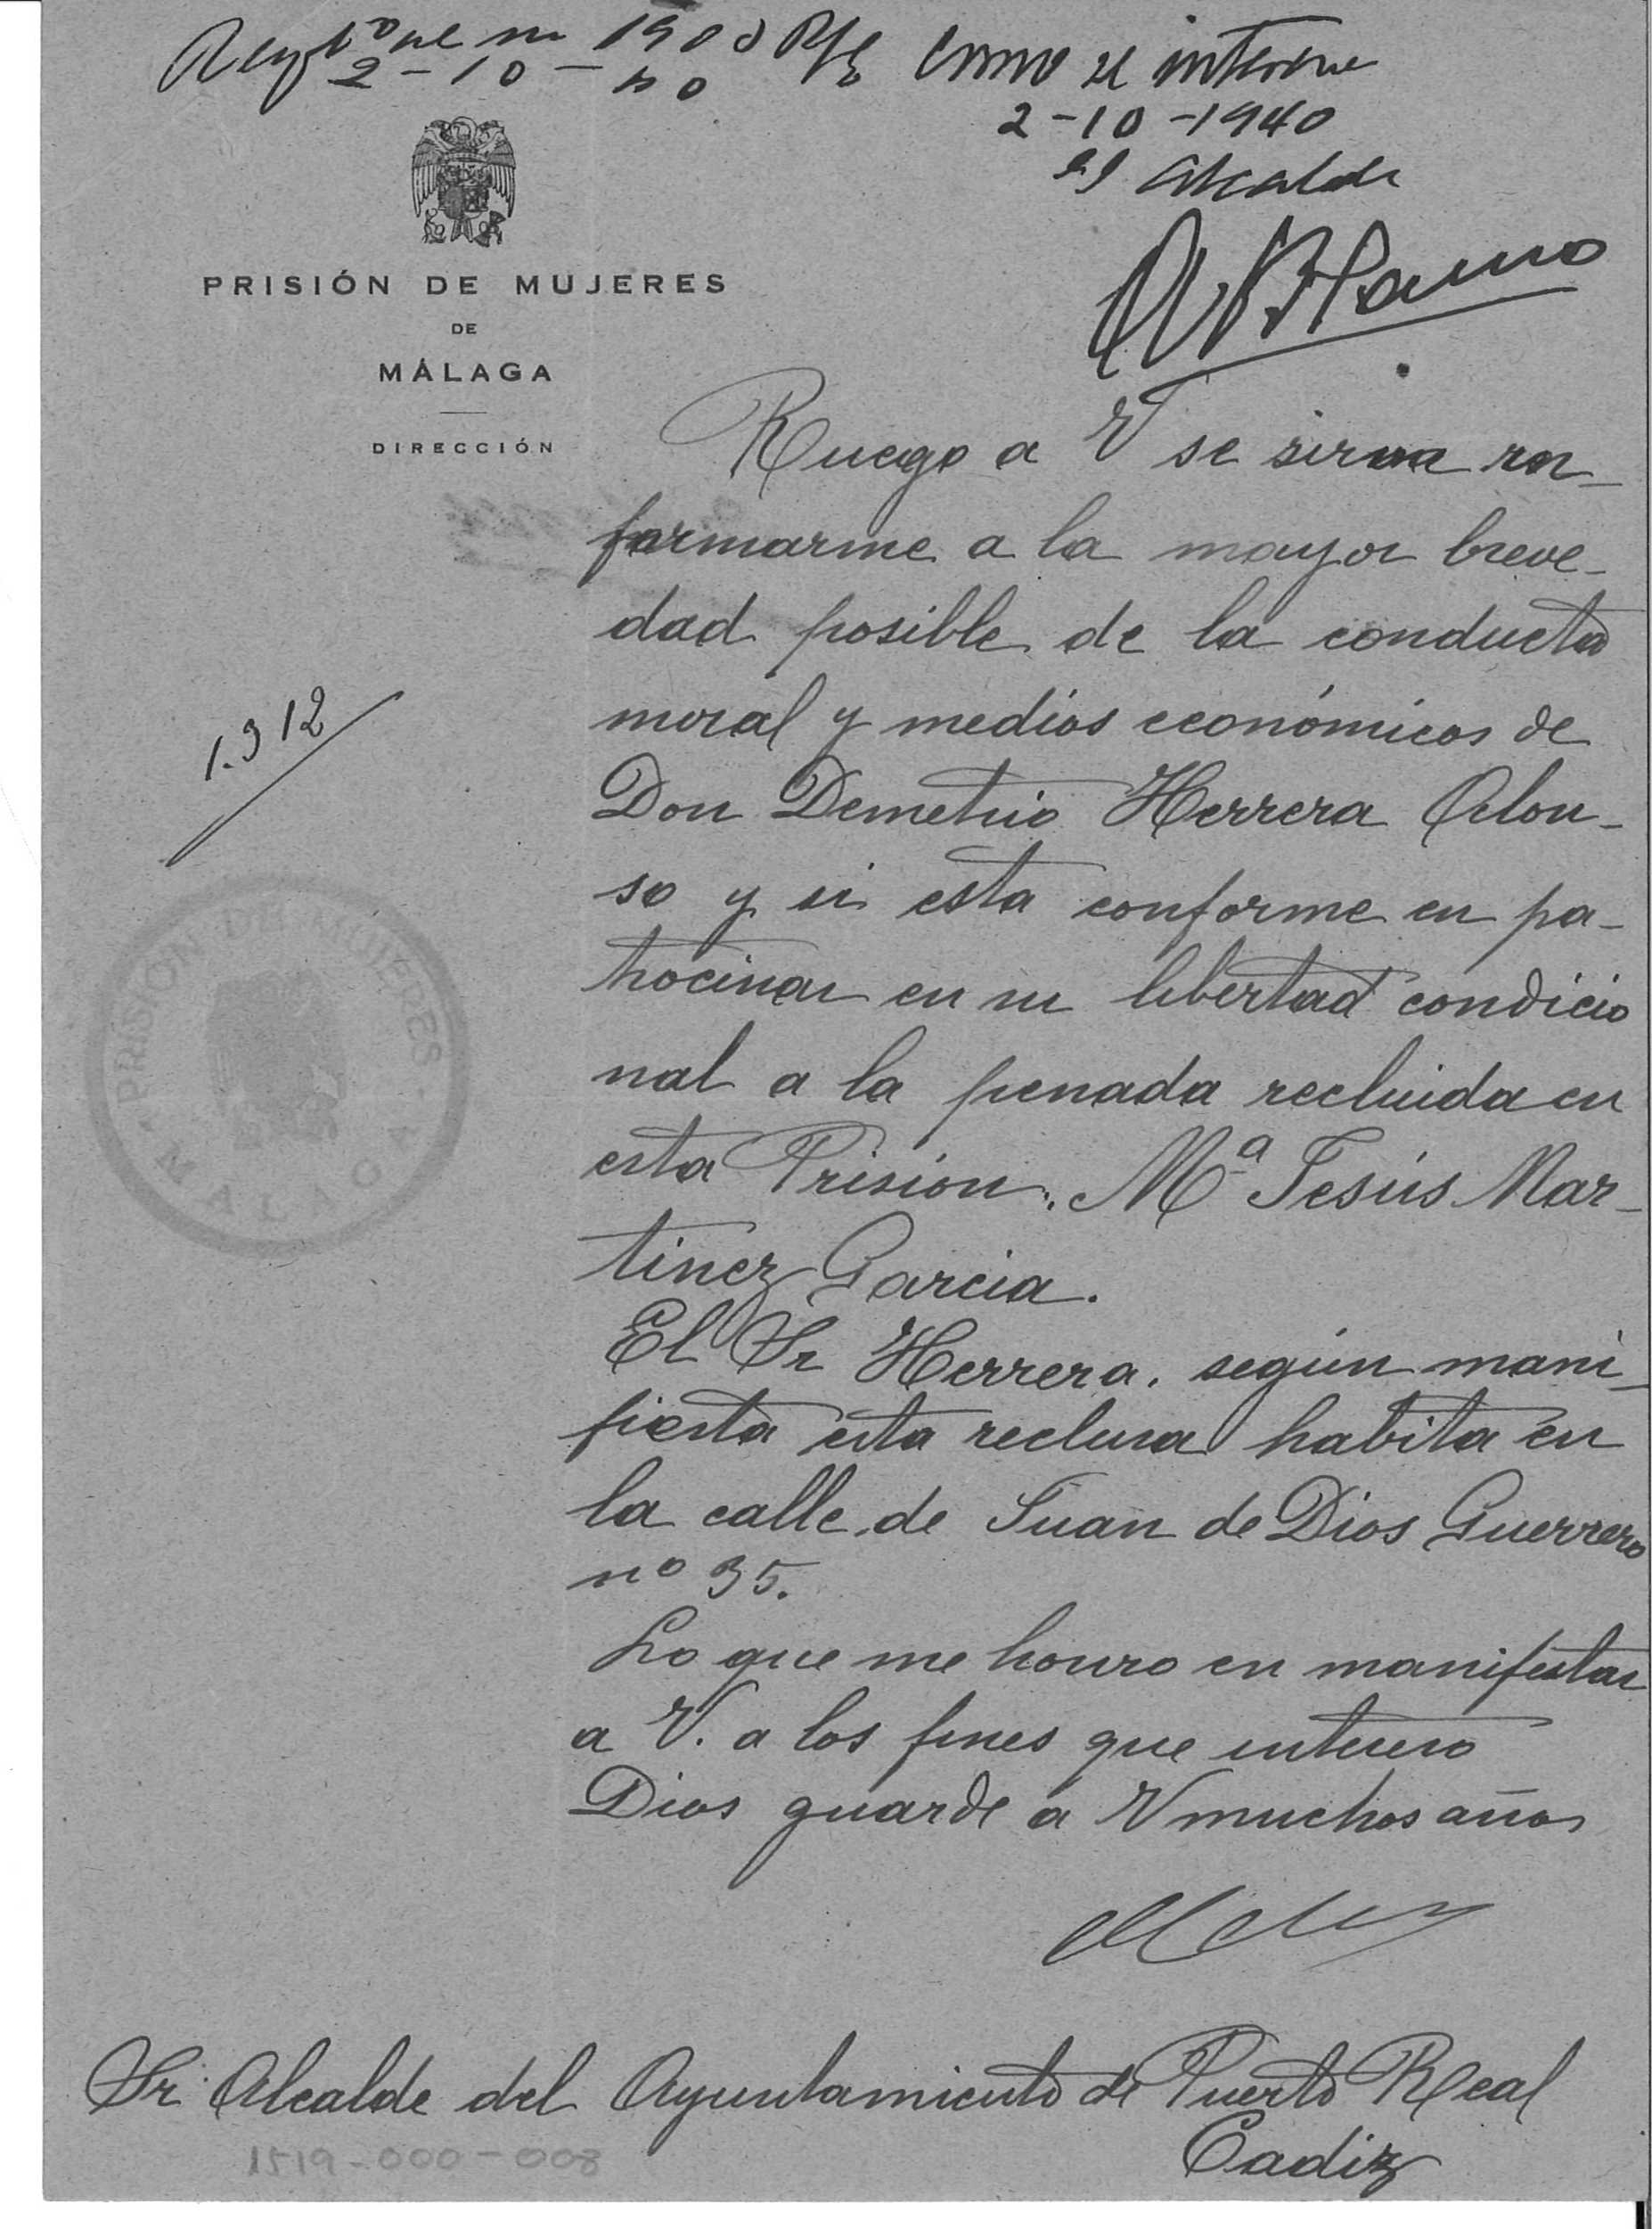 2-10-40
Como se interesa
2-10-1940
El Alcalde
PRISIÓN DE MUJERES
DE
MÁLAGA
DIRECCIÓN
1.912
Ruego a V se sirva in-
formarme a la mayor breve-
dad posible de la conducta
moral y medios económicos de
Don Demetrio Herrera Alon-
so y si esta conforme en pa-
trocinar en su libertad condicio
nal a la penada recluida en
esta Prisión, Mª Jesús Mar-
tinez Garcia.
El Sr Herrera, según mani-
fiesta esta reclusa habita en
la calle de Juan de Dios Guerrero
nº 35.
Lo que me honro en manifestar
a V. a los fines que intereso
Dios guarde a V muchos años
PRISIÓN DE MUJERES
MALAGA
Sr Alcalde del Ayuntamiento de Puerto Real
Cadiz
1519-000-008